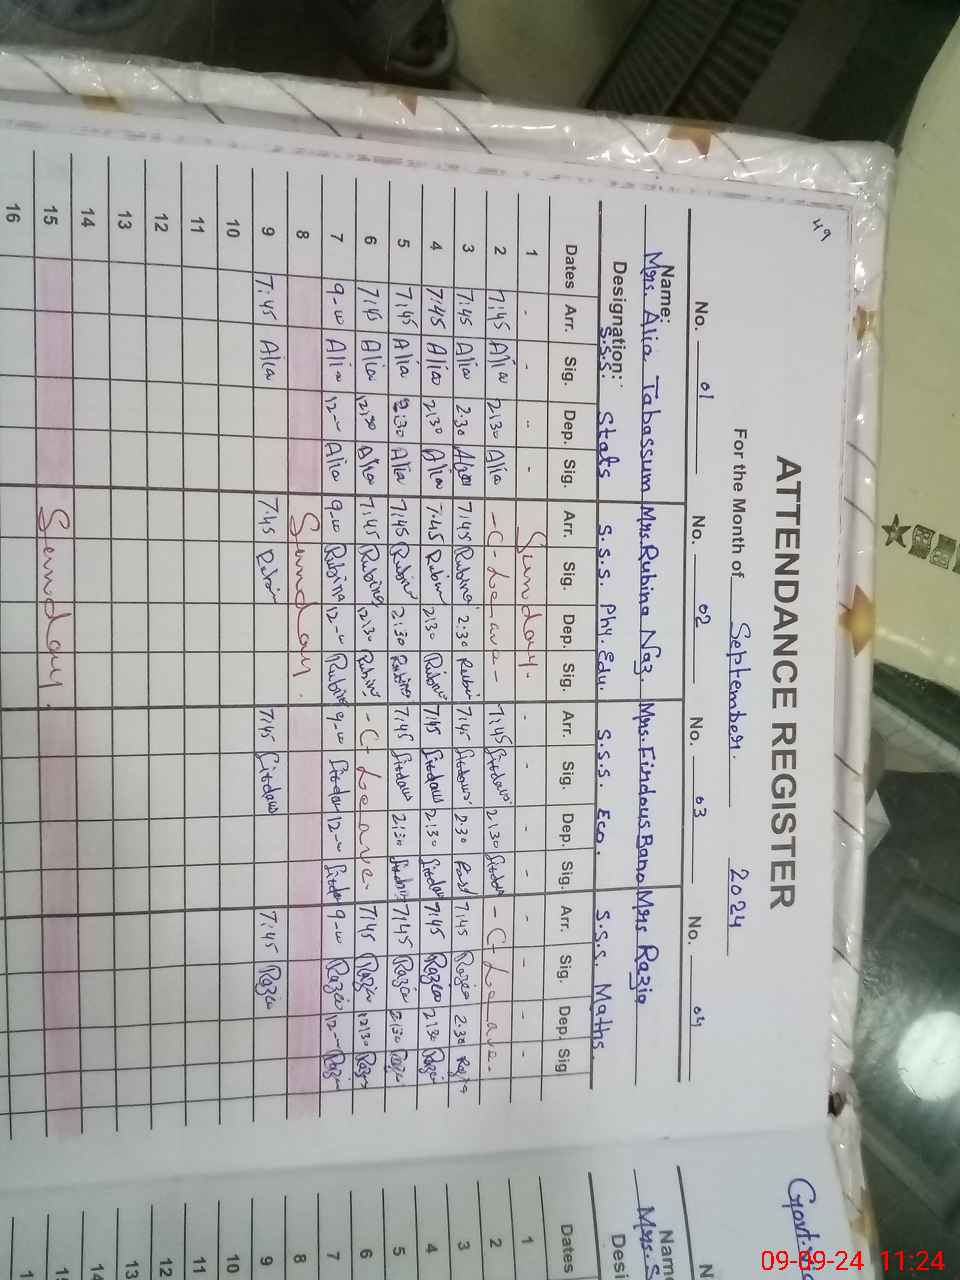 49
ATTENDANCE REGISTER
For the Month of September. 2024
No. 01 No. 02 No. 03 No. 04
Name: Mrs. Alia Tabassum Mrs. Rubina Naz. Mrs. Firdous Bano Mrs Razia
Designation: S.S.S. Stats S.S.S. Phy. Edu. S.S.S. Eco. S.S.S. Maths.
Dates Arr. Sig. Dep. Sig. Arr. Sig. Dep. Sig. Arr. Sig. Dep. Sig. Arr. Sig. Dep. Sig.
1 - - - - Sunday. - - - - - - - -
2 7:45 Alia 2:30 Alia - C - Leave - 7:45 Firdous 2:30 Firdous - C - Leave -
3 7:45 Alia 2:30 Alia 7:45 Rubina 2:30 Rubi 7:45 Firdous 2:30 7:45 Razia 2:30 Razia
4 7:45 Alia 2:30 Alia 7:45 Rubina 2:30 Rubina 7:45 Firdous 2:30 Firdous 7:45 Razia 2:30 Razia
5 7:45 Alia 2:30 Alia 7:45 Rubina 2:30 Rubina 7:45 Firdous 2:30 Firdous 7:45 Razia 2:30 Razia
6 7:45 Alia 12:30 Alia 7:45 Rubina 12:30 Rubina - C - Leave - 7:45 Razia 12:30 Razia
7 9-00 Alia 12-- Alia 9-00 Rubina 12-- Rubina 9-00 Firdous 12-- Firdous 9-00 Razia 12-- Razia
8 Sunday.
9 7:45 Alia 7:45 Rubina 7:45 Firdous 7:45 Razia
10
11
12
13
14
15 Sunday.
16
Govt.
N
Nam Mrs. S
Desi
Dates
1
2
3
4
5
6
7
8
9
10
11
12
13
14
09-09-24 11:24